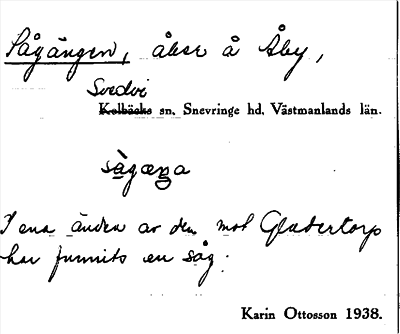 Sågängen, åker å Åby,
Svedvi
Kolbäcks sn, Snevringe hd, Västmanlands län.
sàgæŋa
I ena änden av den mot Gladtorp
har funnits en såg.
Karin Ottosson 1938.